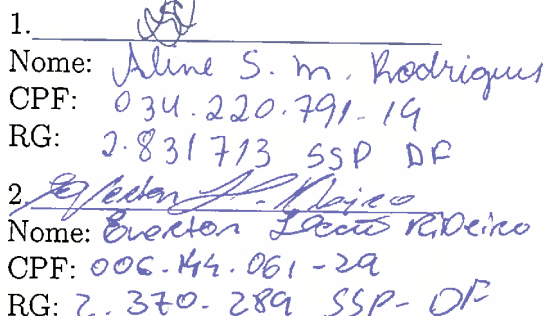 1.
Nome: Aline S. M. Rodrigues
CPF: 034.220.791-19
RG: 2.831713 SSP DF
2.
Nome: Everton Ribeiro
CPF: 006.144.061-29
RG: 2.370.289 SSP-DF